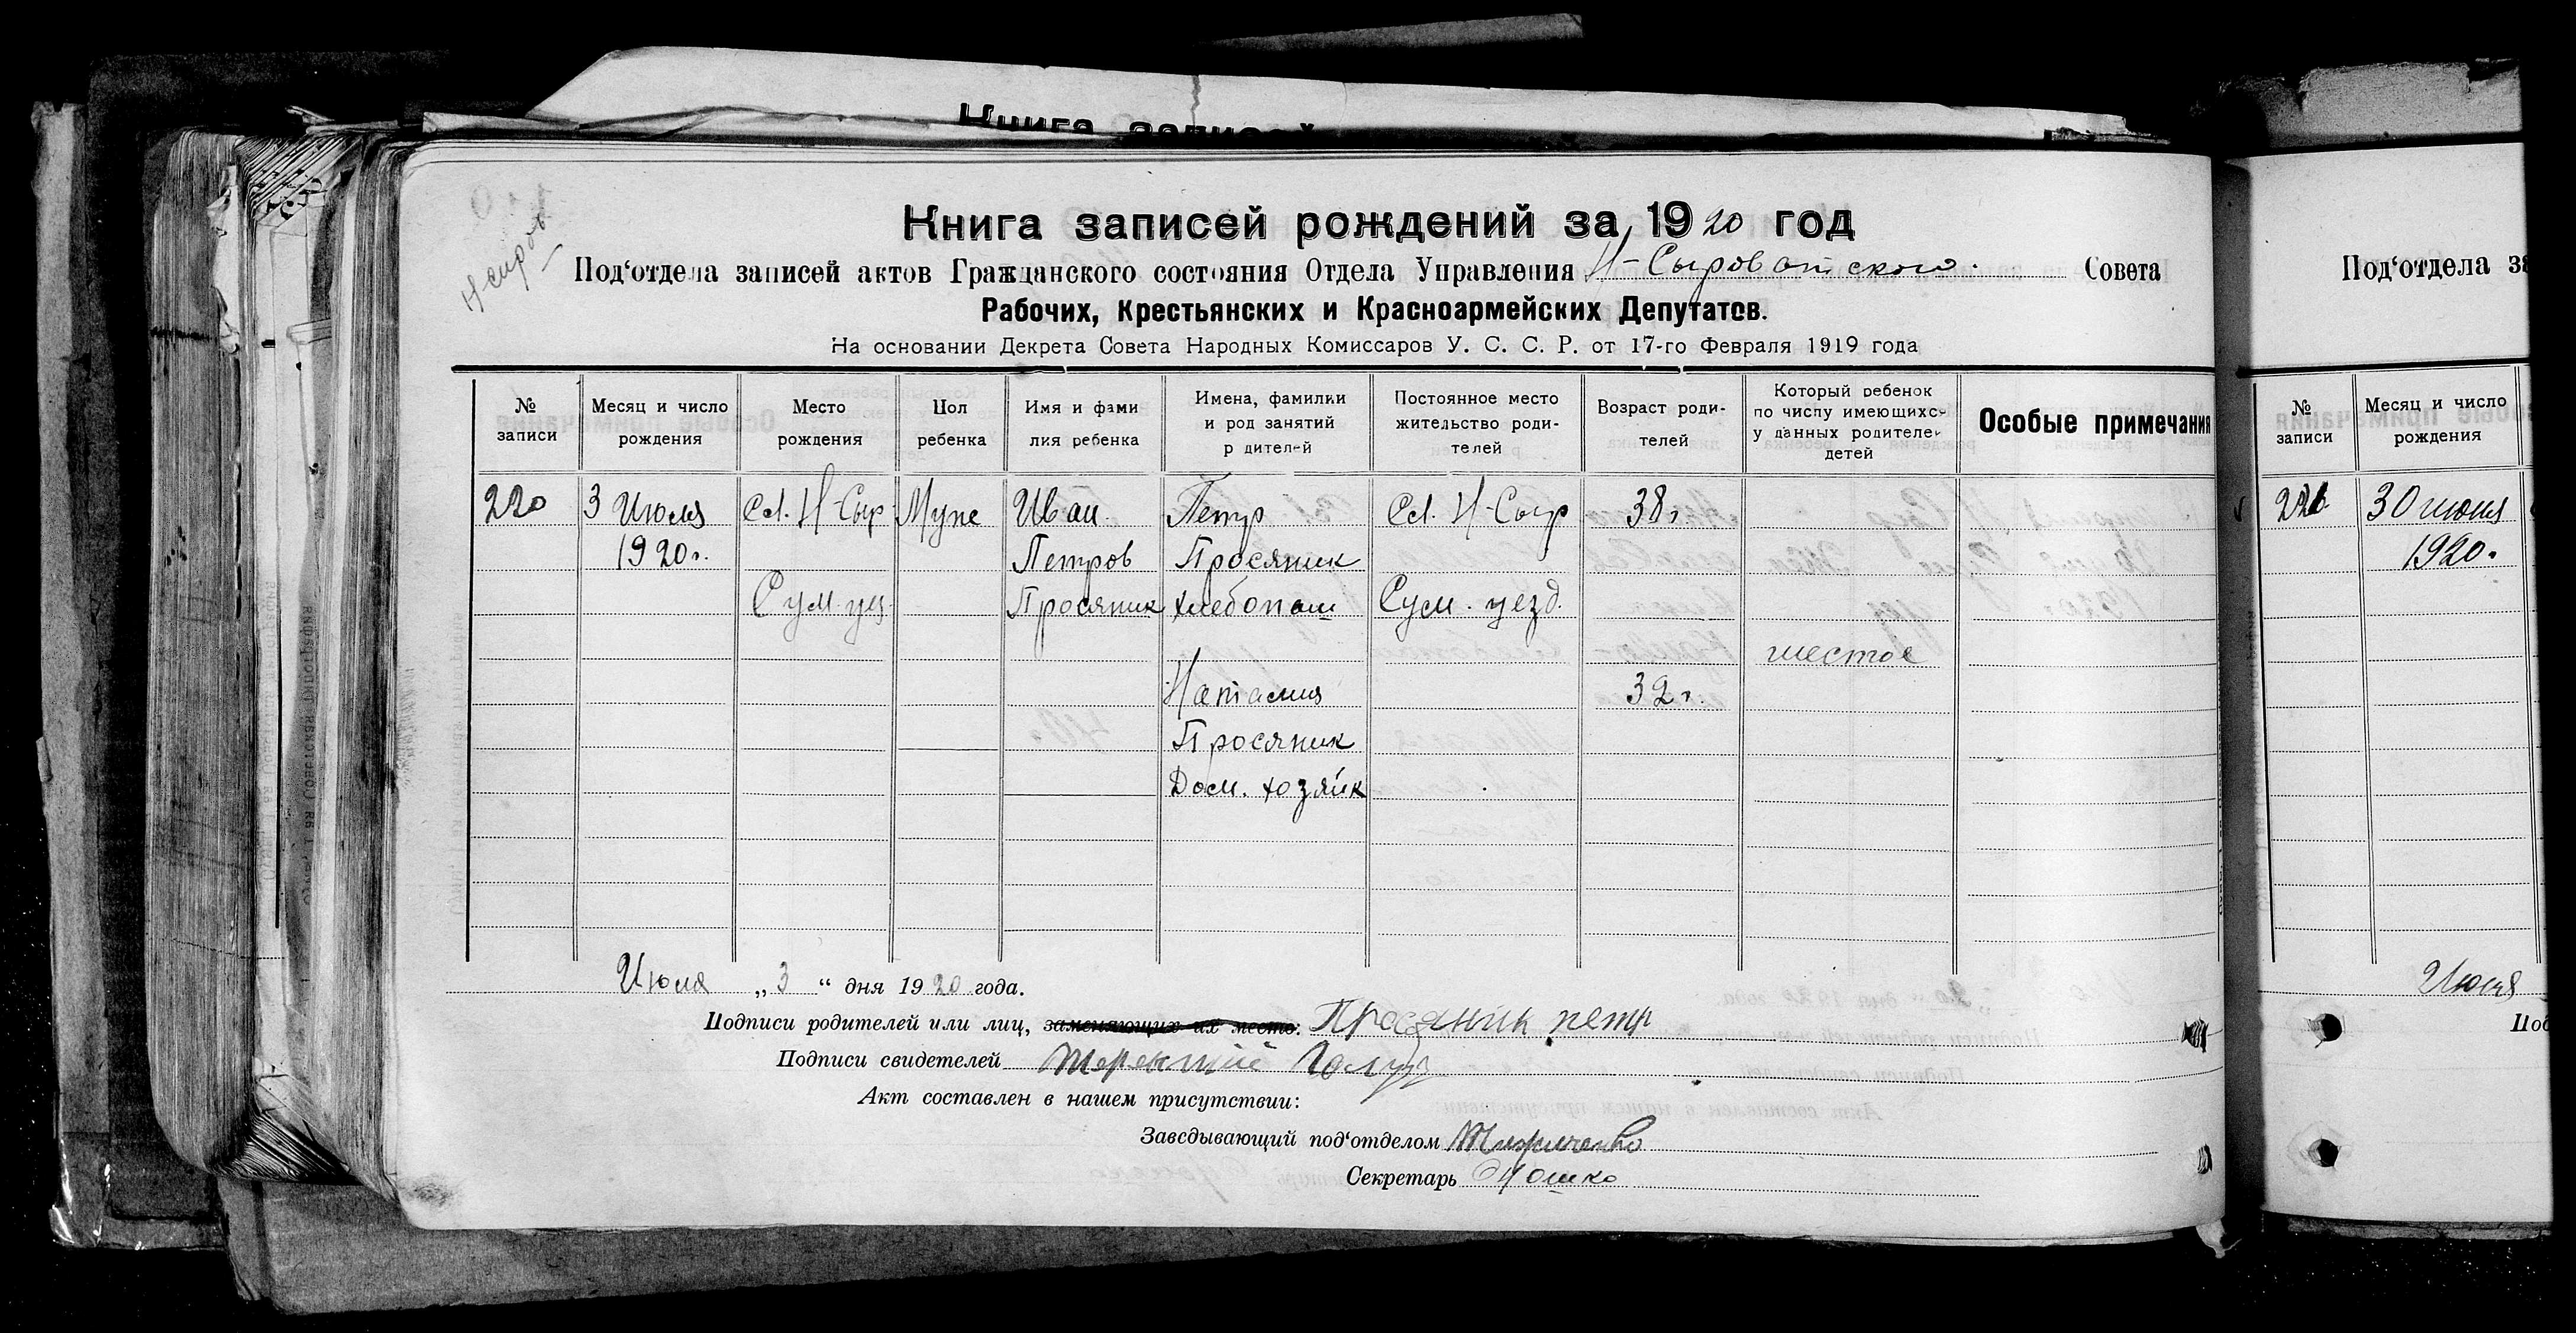 Книга записей
Н сыров.
Книга записей рождений за 1920 год
Под‘отдела записей актов Гражданского состояния Отдела Управления Н-Сыроватского. Совета
Рабочих, Крестьянских и Красноармейских Депутатов.
На основании Декрета Совета Народных Комиссаров У. С. С. Р. от 17-го Февраля 1919 года
№ записи
Месяц и число рождения
Место рождения
Пол ребенка
Имя и фами лия ребенка
Имена, фамилии и род занятий р дителей
Постоянное место жительство роди- телей
Возраст роди- телей
Который ребенок по числу имеющихся у данных родителей детей
Особые примечания
220 3 Июля Сл. Н-Сыр Муже Иван Петр Сл. Н-Сыр 38 г.
1920 г. Петров Просяник
Сум. уез Просяник хлебопаш Сум. уезд.
шестое
Наталия 32 г.
Просяник
Дом. хозяйк
Июля „3“ дня 1920 года.
Подписи родителей или лиц, заменяющих их место: Просяник петр
Подписи свидетелей Терентий
Акт составлен в нашем присутствии:
Заведывающий под‘отделом
Секретарь
Под‘отдела за
№ записи
Месяц и число рождения
221 30 июня
1920.
Июля
Под